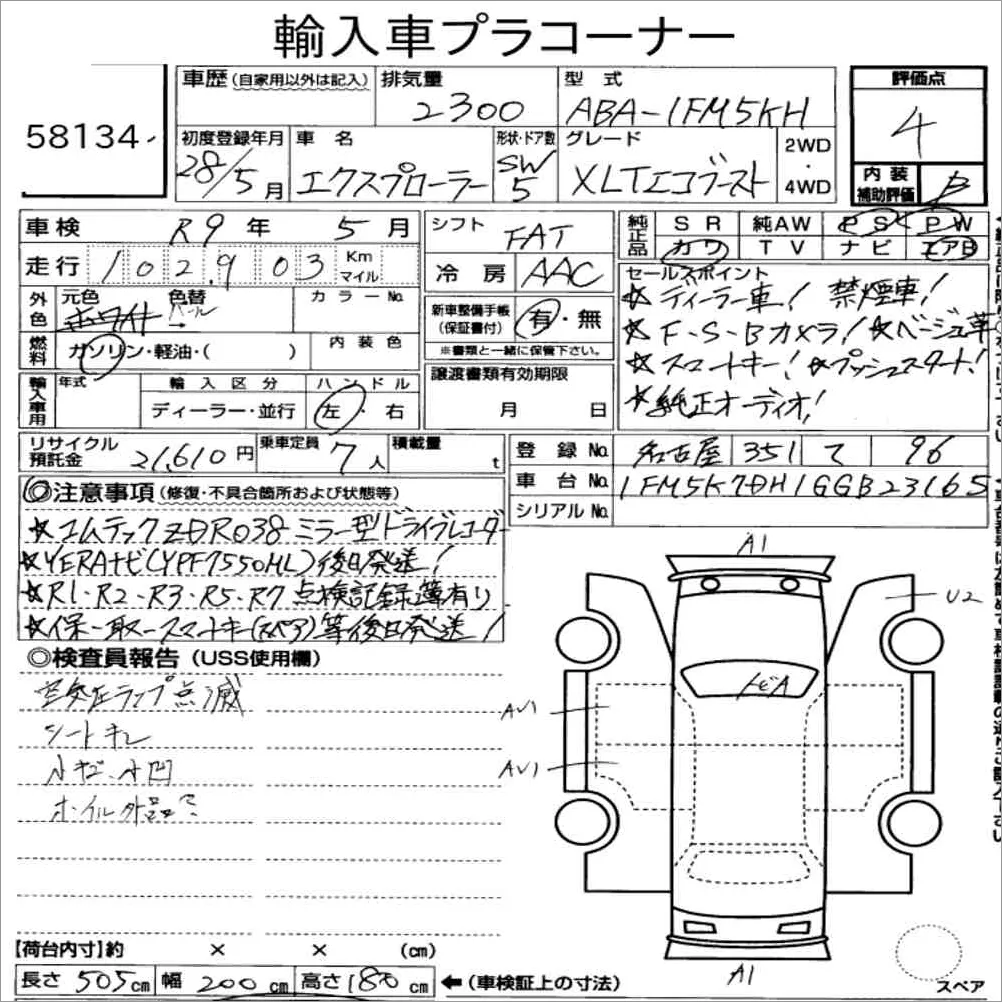 輸入車プラコーナー
58134
車歴(自家用以外は記入) 排気量 2300 型式 ABA-1FM5KH 評価点 4
初度登録年月 28/5月 車名 エクスプローラー 形状・ドア数 SW 5 グレード XLTエコブースト 2WD・4WD 内装補助評価 B
車検 R9年 5月 シフト FAT 純正品 SR 純AW PS PW
カワ TV ナビ エアB
走行 102,903 Km マイル 冷房 AAC
外色 元色 ホワイト 色替 パール → カラーNo.
新車整備手帳(保証書付) 有・無
※書類と一緒に保管下さい。
燃料 ガソリン・軽油・( ) 内装色
セールスポイント
☆ディーラー車! 禁煙車!
☆F-S-Bカメラ!☆ベージュ革
☆スマートキー!☆プッシュスタート!
☆純正オーディオ!
輸入車用 年式 輸入区分 ディーラー・並行 ハンドル 左・右
譲渡書類有効期限 月 日
リサイクル預託金 21,610円 乗車定員 7人 積載量 t
登録No. 名古屋 351 て 96
車台No. 1FM5K7DH1GGB23165
シリアルNo.
◎注意事項(修復・不具合箇所および状態等)
☆コムテックZDR038ミラー型ドライブレコーダ
☆YERAナビ(YPF7550ML)後日発送!
☆R1・R2・R3・R5・R7点検記録簿有り
☆保・取・スマートキー(スペア)等後日発送!
◎検査員報告(USS使用欄)
空気圧ランプ点滅
シートキレ
小キズ、小凹
ホイル外品
A1
U2
トビA
AU1
AU1
A1
スペア
【荷台内寸】約 × × (cm)
長さ 505cm 幅 200cm 高さ 180cm ←(車検証上の寸法)